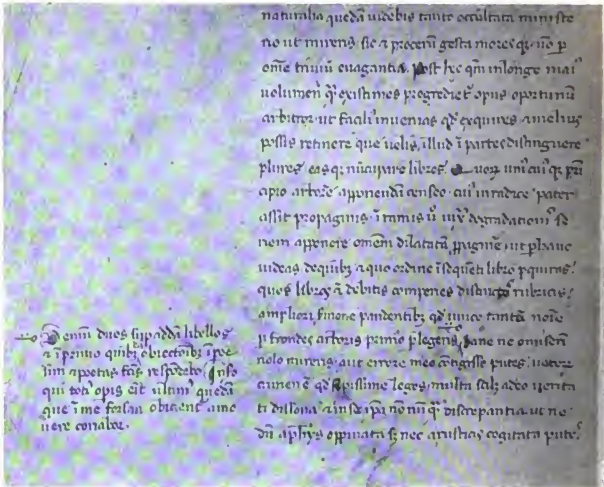 naturalia quedā uidebis tanto occultata miniſte
rio ut mireris ſic ⁊ procerū geſta moreſqꝫ nō ꝑ
omē triuiū euagantia. Poſt hec qm̄ in longe maiꝰ
uolumen q̄ exiſtimes progrediet᷑ opus oportunū
arbitror ut faciliꝰ inuenias qd̓ exquires ⁊ melius
poſſis retinere que uelis, illud ī partes diſtinguere
plures eaſqꝫ nūcupare libros. Quoꝝ unicuiqꝫ prī
cipio arborē apponendā cenſeo cuiꝰ in radice pater
aſſit propaginis ī ramis ū iux̄ degradationē ſe
riem apponere omēm dilatatā ꝓpaginē ut ꝑ hanc
uideas de quibꝫ ⁊ quo ordine ī ſequēti libro ꝑquiras
quos libros ⁊ debitis comperies diſtinctos rubricis
ampliori ſermone pandentibꝫ qd̓ unico tantū noīe
ꝑ frondes arboris primo ꝑlegeris. Sane ne omiſerī
nolo mireris aut errore meo cōtigiſſe putes, ueterū
crimen ē qd̓ ſepiſſime leges, multa ſcilꝫ adeo uerita
ti diſſona ⁊ in ſe ip̄a nō nūq̄ diſcrepantia ut ne
dū a phyꝰ oppinata ſꝫ nec a ruſticis cogitata putes
Demū duos ſuꝑaddā libellos
⁊ ī primo quibꝰdā obiectōibꝫ ī poe
ſim ⁊ poetas factis reſpōdebo. In ſcdo
qui totiꝰ opis erit ultimꝰ quedā
que ī me forſan obicient᷑ amo
uere conabor.